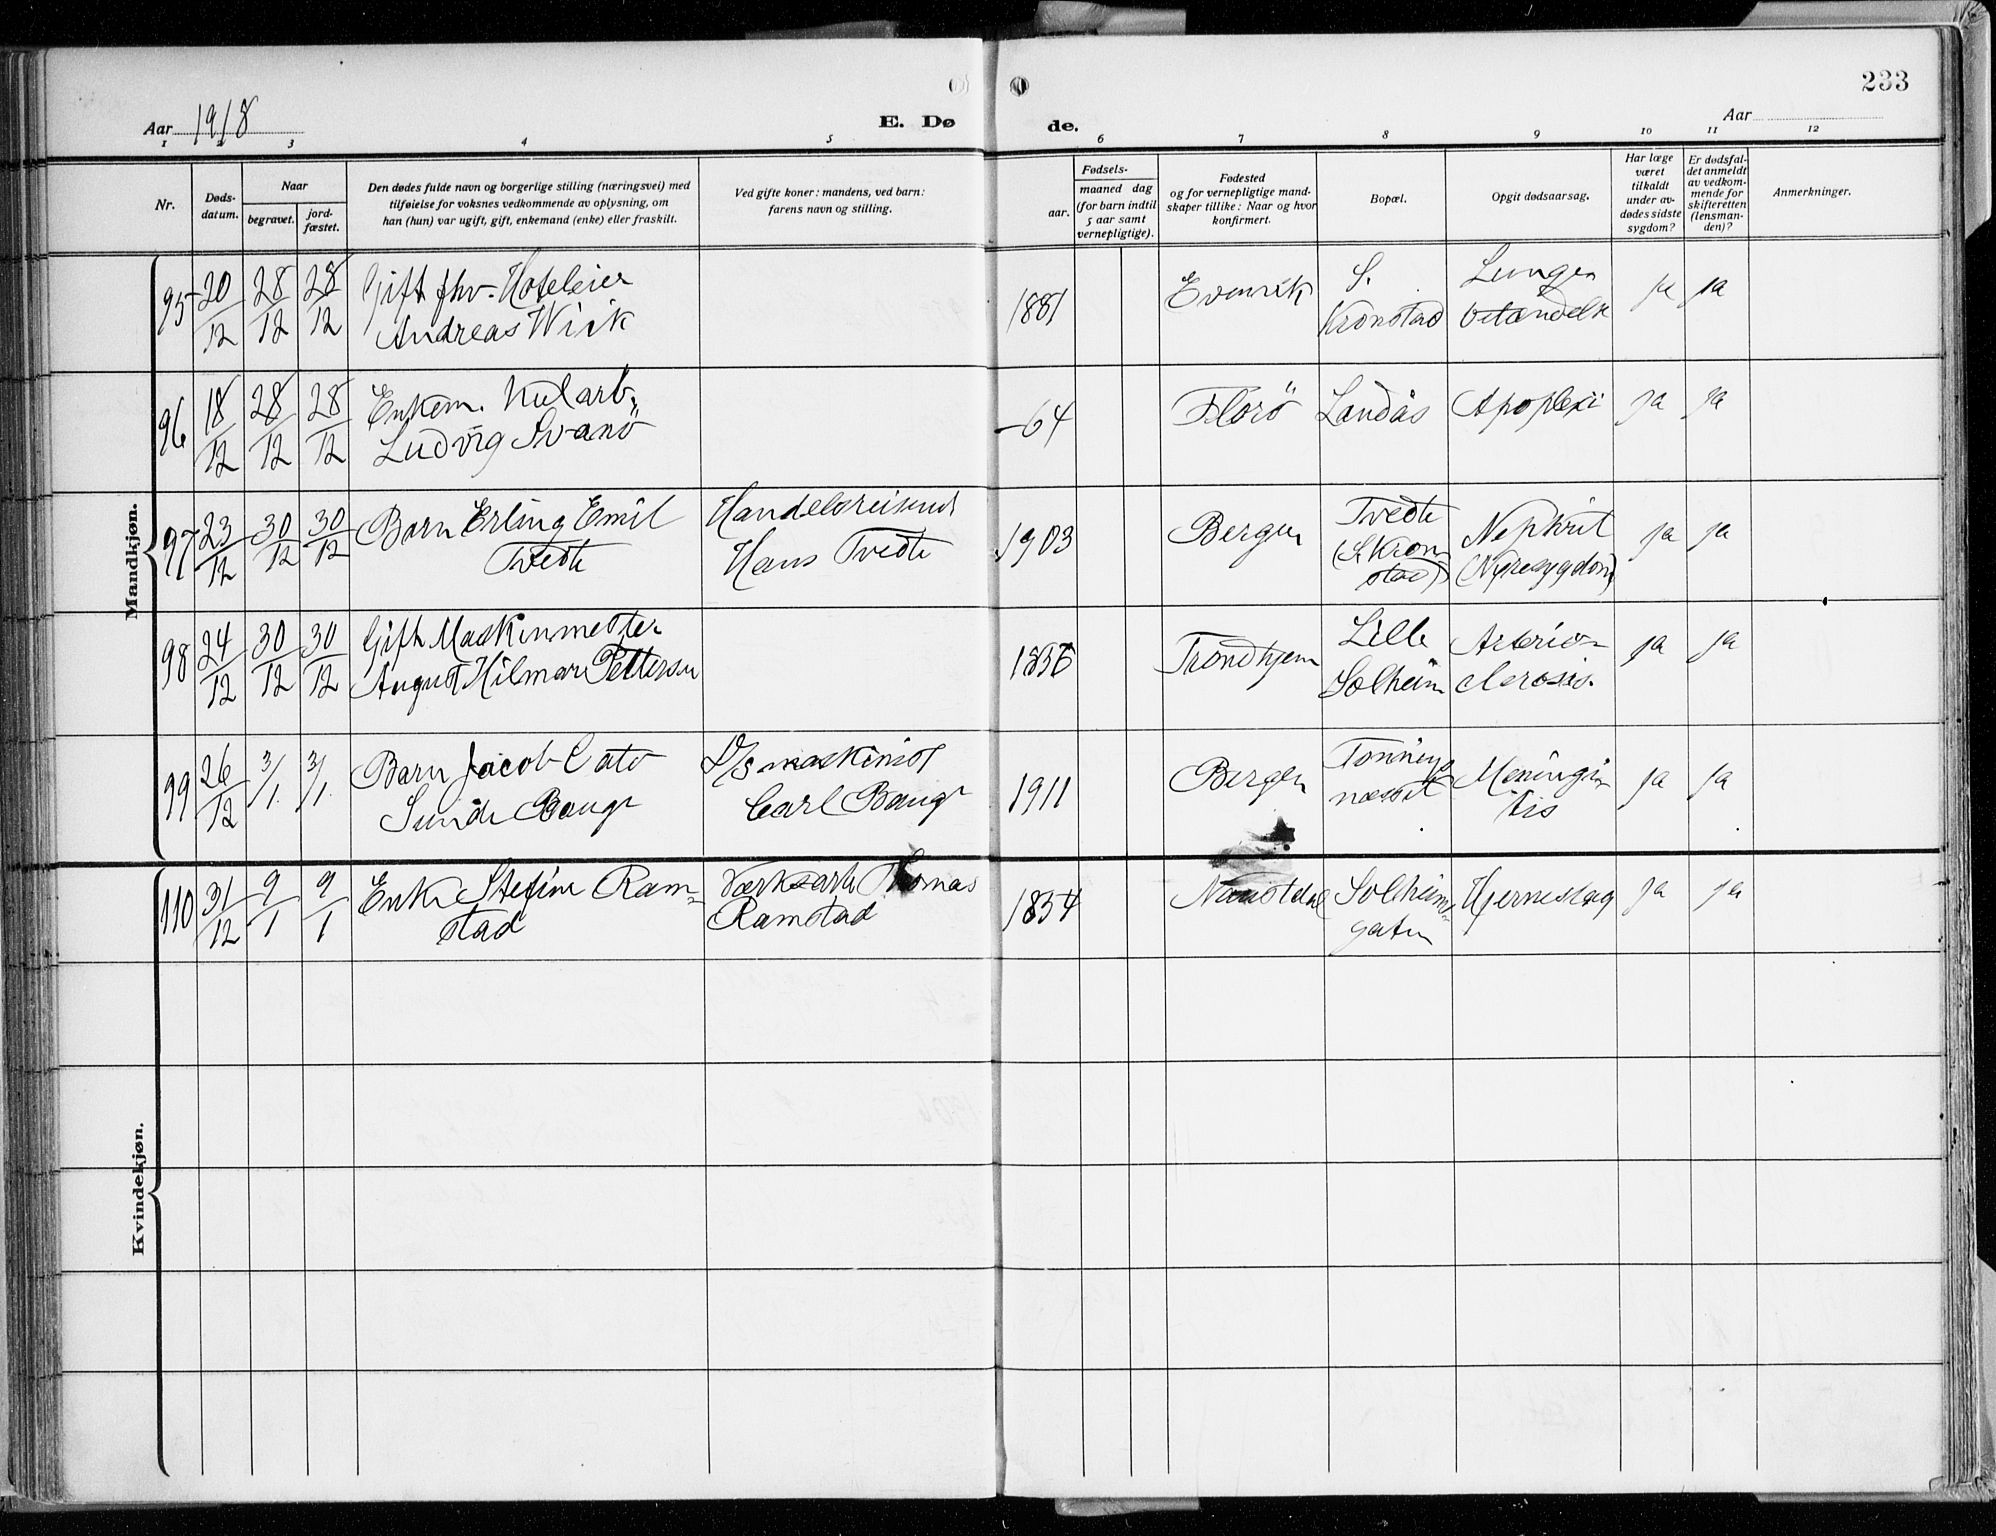 233
Aar 1918
E. Dø de.
Aar
1 2 3 4 5 6 7 8 9 10 11 12
Nr.
Døds-
datum.
Naar
begravet.
jord-
fæstet.
Den dødes fulde navn og borgerlige stilling (næringsvei) med
tilføielse for voksnes vedkommende av oplysning, om
han (hun) var ugift, gift, enkemand (enke) eller fraskilt.
Ved gifte koner: mandens, ved barn:
farens navn og stilling.
Fødsels-
aar.
maaned dag
(for barn indtil
5 aar samt
vernepligtige).
Fødested
og for vernepligtige mand-
skaper tillike: Naar og hvor
konfirmert.
Bopæl.
Opgit dødsaarsag.
Har læge
været
tilkaldt
under av-
dødes sidste
sygdom?
Er dødsfal-
det anmeldt
av vedkom-
mende for
skifteretten
(lensman-
den)?
Anmerkninger.
Mandkjøn.
95 20/12 28/12 28/12 Gift fhv. Hoteleier
Andreas Wiik
1881 S.
Kronstad
Lunge
betændelse
ja ja
96 18/12 28/12 28/12 Enkem.
Ludvig Svanö
-64 Florö Landås Apoplexi ja ja
97 23/12 30/12 30/12 Barn Erling Emil
Tvedt
Handelsreisend
Hans Tvedt
1903 Bergen Tvedt
(S. Kron
stad)
Nephrit
(Nyresygdom)
ja ja
98 24/12 30/12 30/12 Gift Maskinmester
August Hilmar Pettersen
1836 Trondhjem Lille
Solheim
Arterio-
clerosis.
ja ja
99 26/12 3/1 3/1 Barn Jacob Cato
Sunde Baug
D/s maskinist
Carl Baug
1911 Bergen
Meningi
tis
ja ja
Kvindekjøn.
110 31/12 9/1 9/1 Enke Stefine Ram-
stad
Værksarb. Thomas
Ramstad
1834 Naustdal Solheims-
gaten
Hjerneslag
ja ja